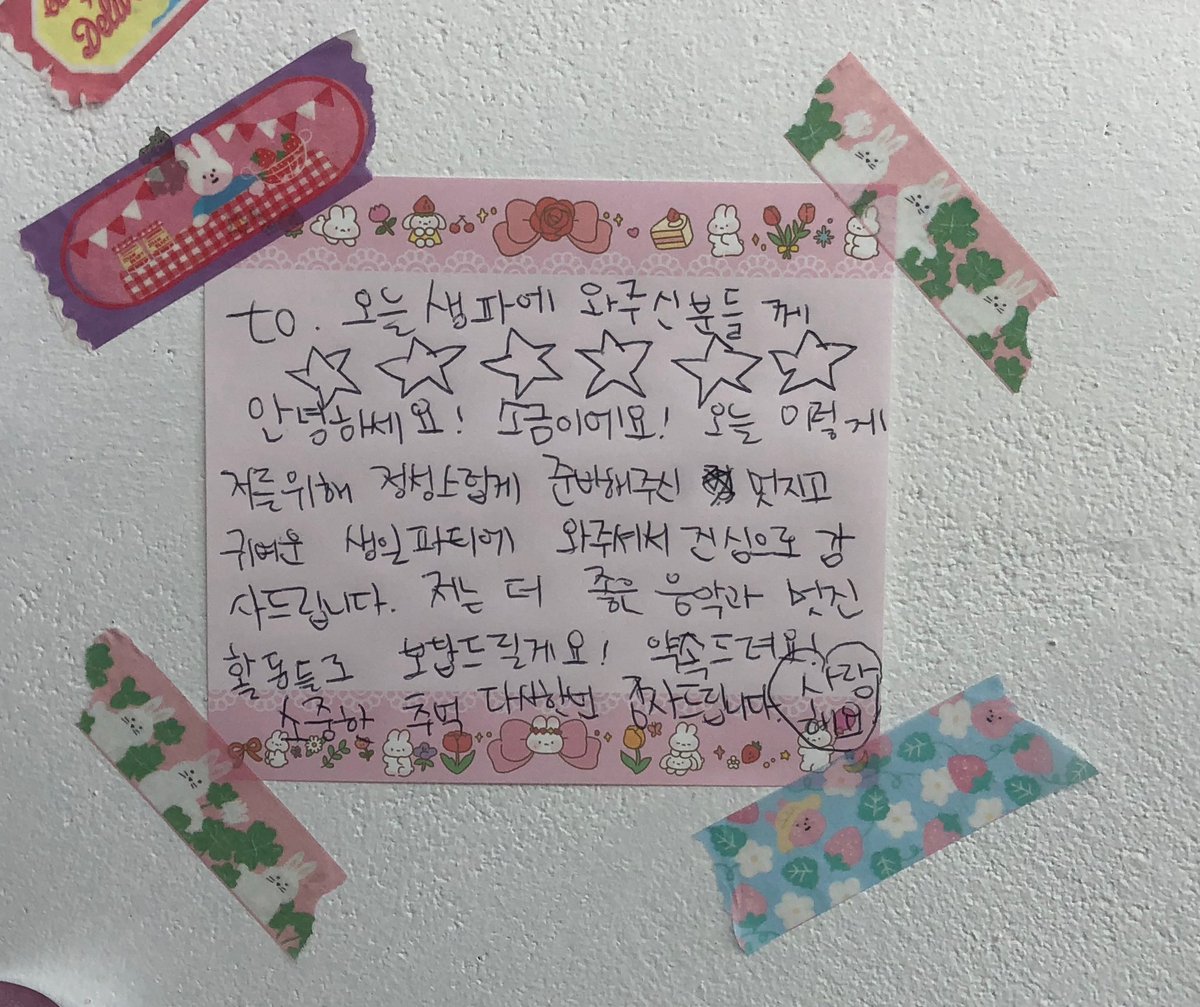 Deli
to. 오늘 생파에 와주신분들 께
안녕하세요! 소금이에요! 오늘 이렇게
저를위해 정성스럽게 준비해주신 멋지고
귀여운 생일파티에 와주셔서 진심으로 감
사드립니다. 저는 더 좋은 음악과 멋진
활동들로 보답드릴게요! 약속드려요!
소중한 추억 다시한번 감사드립니다.
사랑
해요